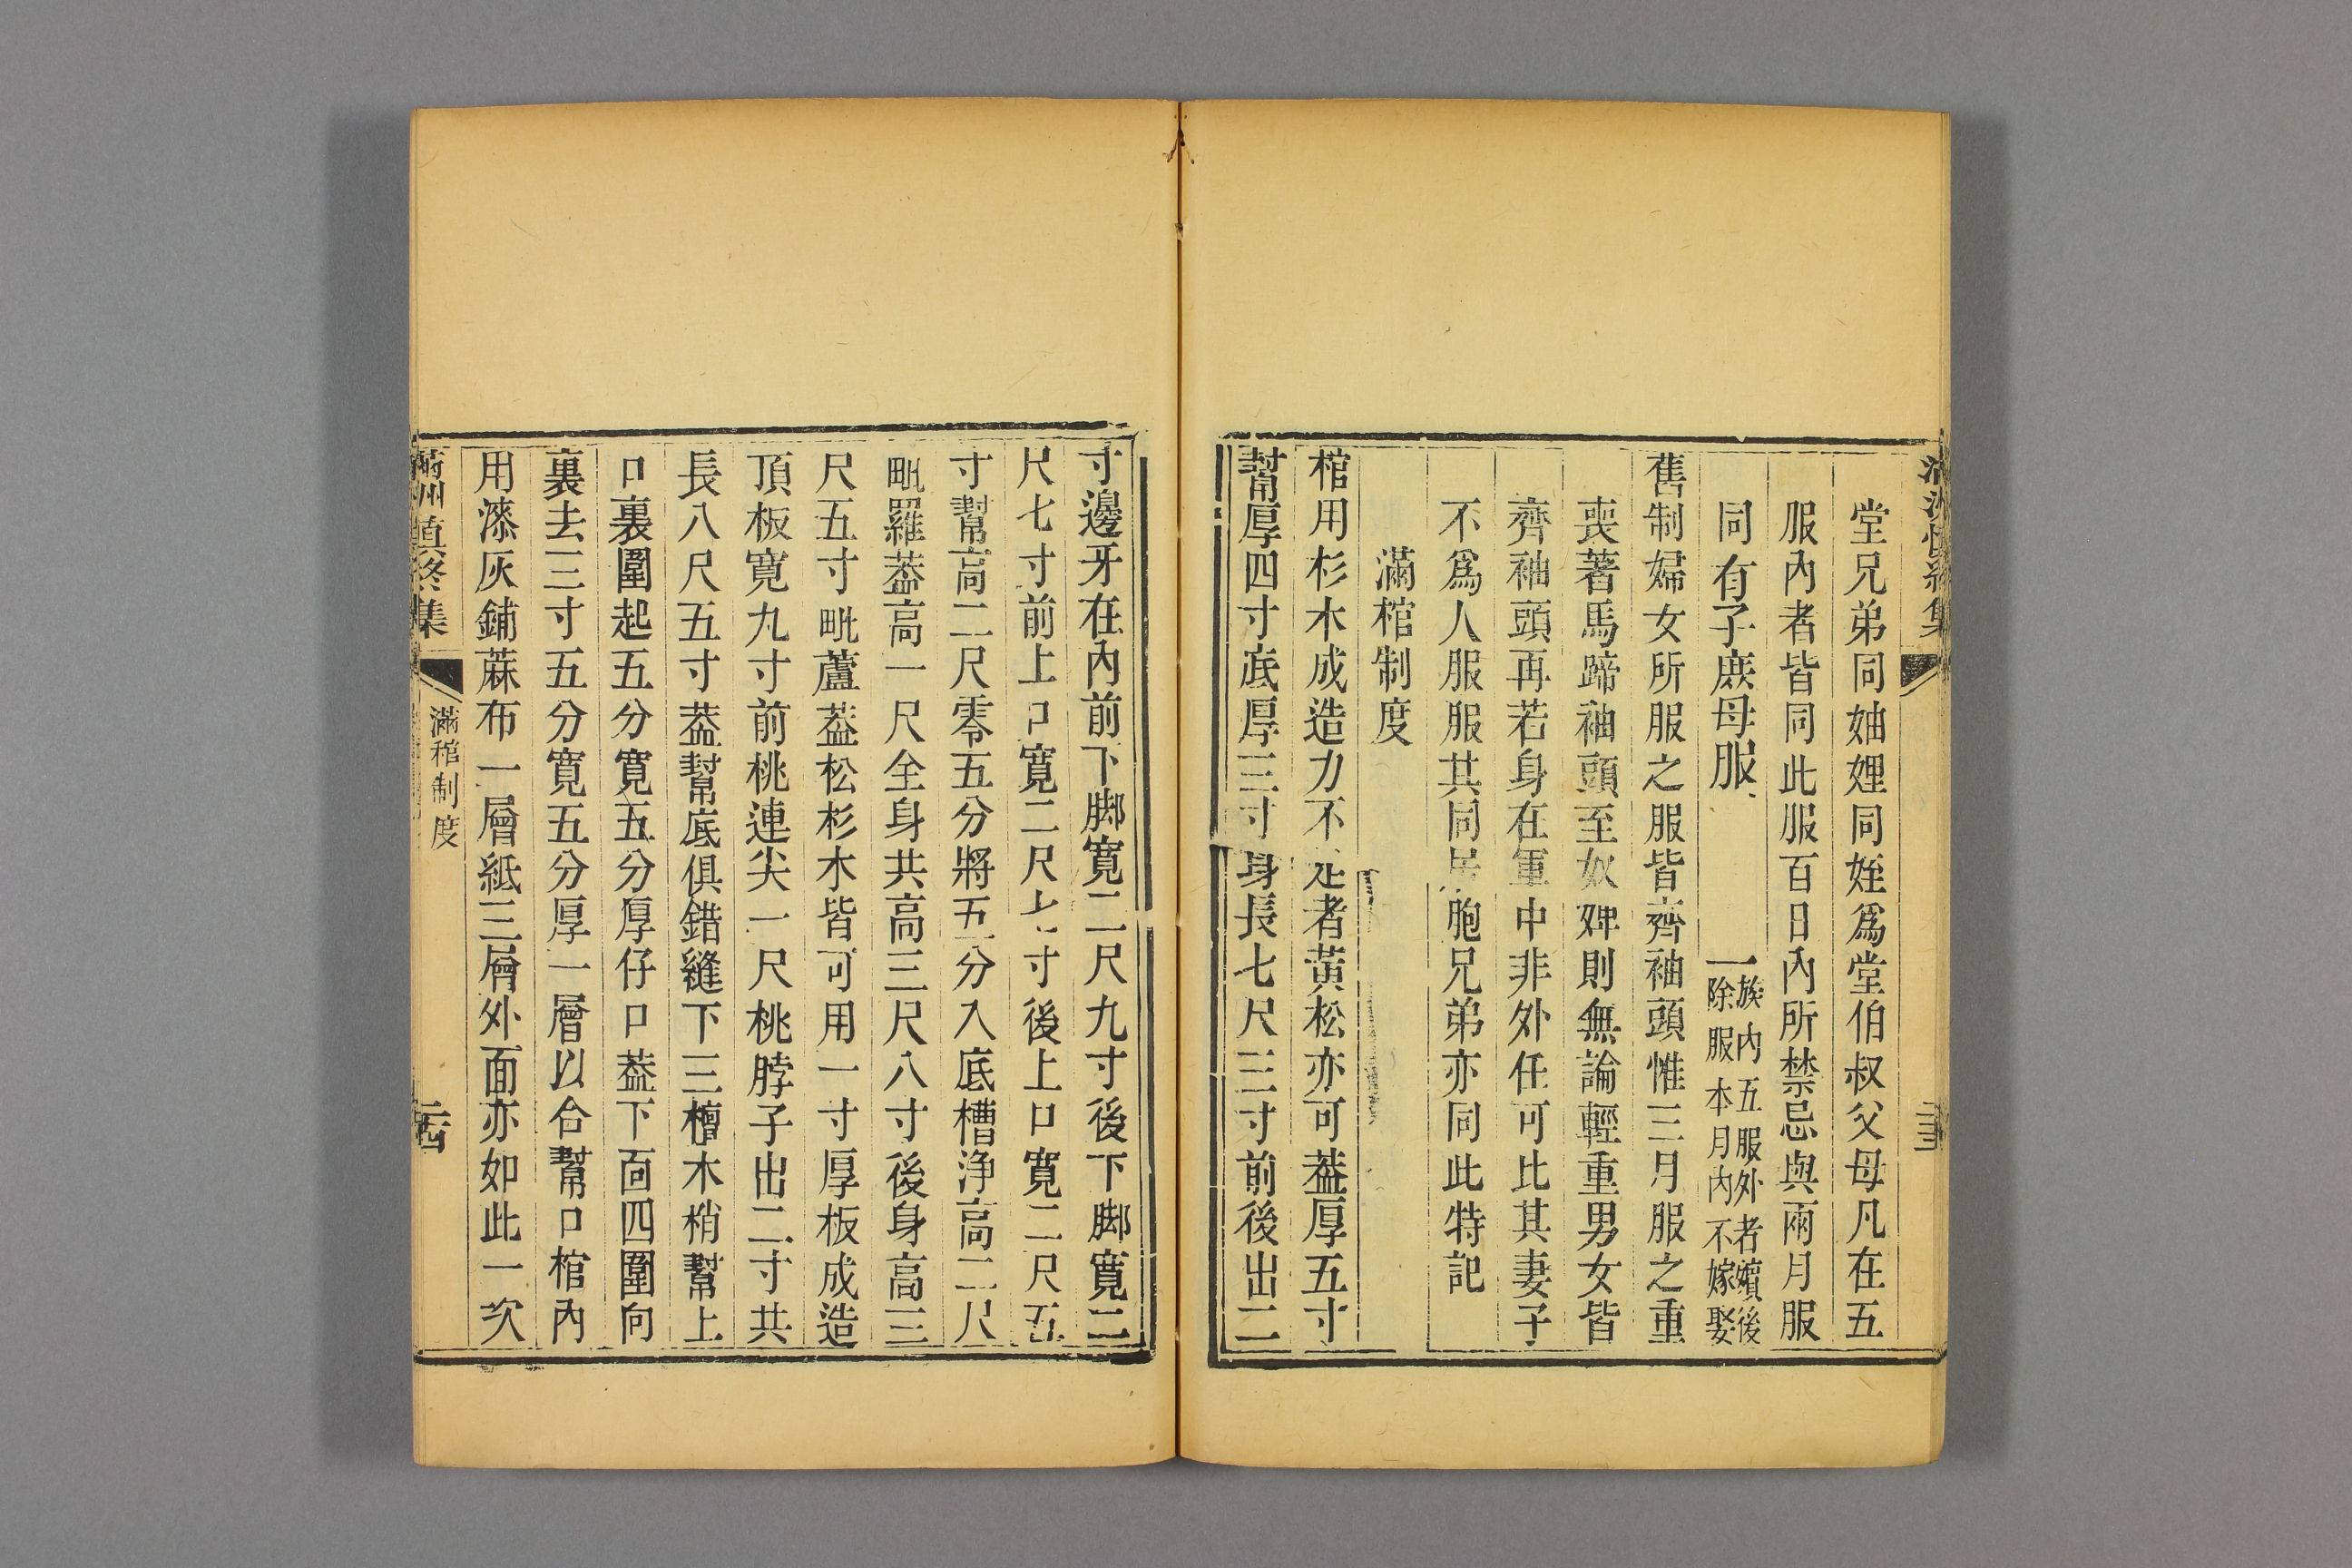 滿洲慎終集
二十三
堂兄弟同妯娌同姪爲堂伯叔父母凡在五
服內者皆同此服百日內所禁忌與兩月服
同有子庶母服
一族內五服外者殯後
除服本月內不嫁娶
舊制婦女所服之服皆齊袖頭惟三月服之重
喪著馬蹄袖頭至奴婢則無論輕重男女皆
齊袖頭再若身在軍中非外任可比其妻子
不爲人服服其同居胞兄弟亦同此特記
滿棺制度
棺用杉木成造力不足者黃松亦可葢厚五寸
幫厚四寸底厚三寸身長七尺三寸前後出二
寸邊牙在內前下脚寬二尺九寸後下脚寬二
尺七寸前上口寬二尺七寸後上口寬二尺五
寸幫高二尺零五分將五分入底槽淨高二尺
毗羅葢高一尺全身共高三尺八寸後身高三
尺五寸毗蘆葢松杉木皆可用一寸厚板成造
頂板寬九寸前桃連尖一尺桃脖子出二寸共
長八尺五寸葢幫底俱錯縫下三檀木梢幫上
口裏圍起五分寬五分厚仔口葢下面四圍向
裏去三寸五分寬五分厚一層以合幫口棺內
用漆灰鋪蔴布一層紙三層外面亦如此一次
滿洲慎終集
滿棺制度
二十四